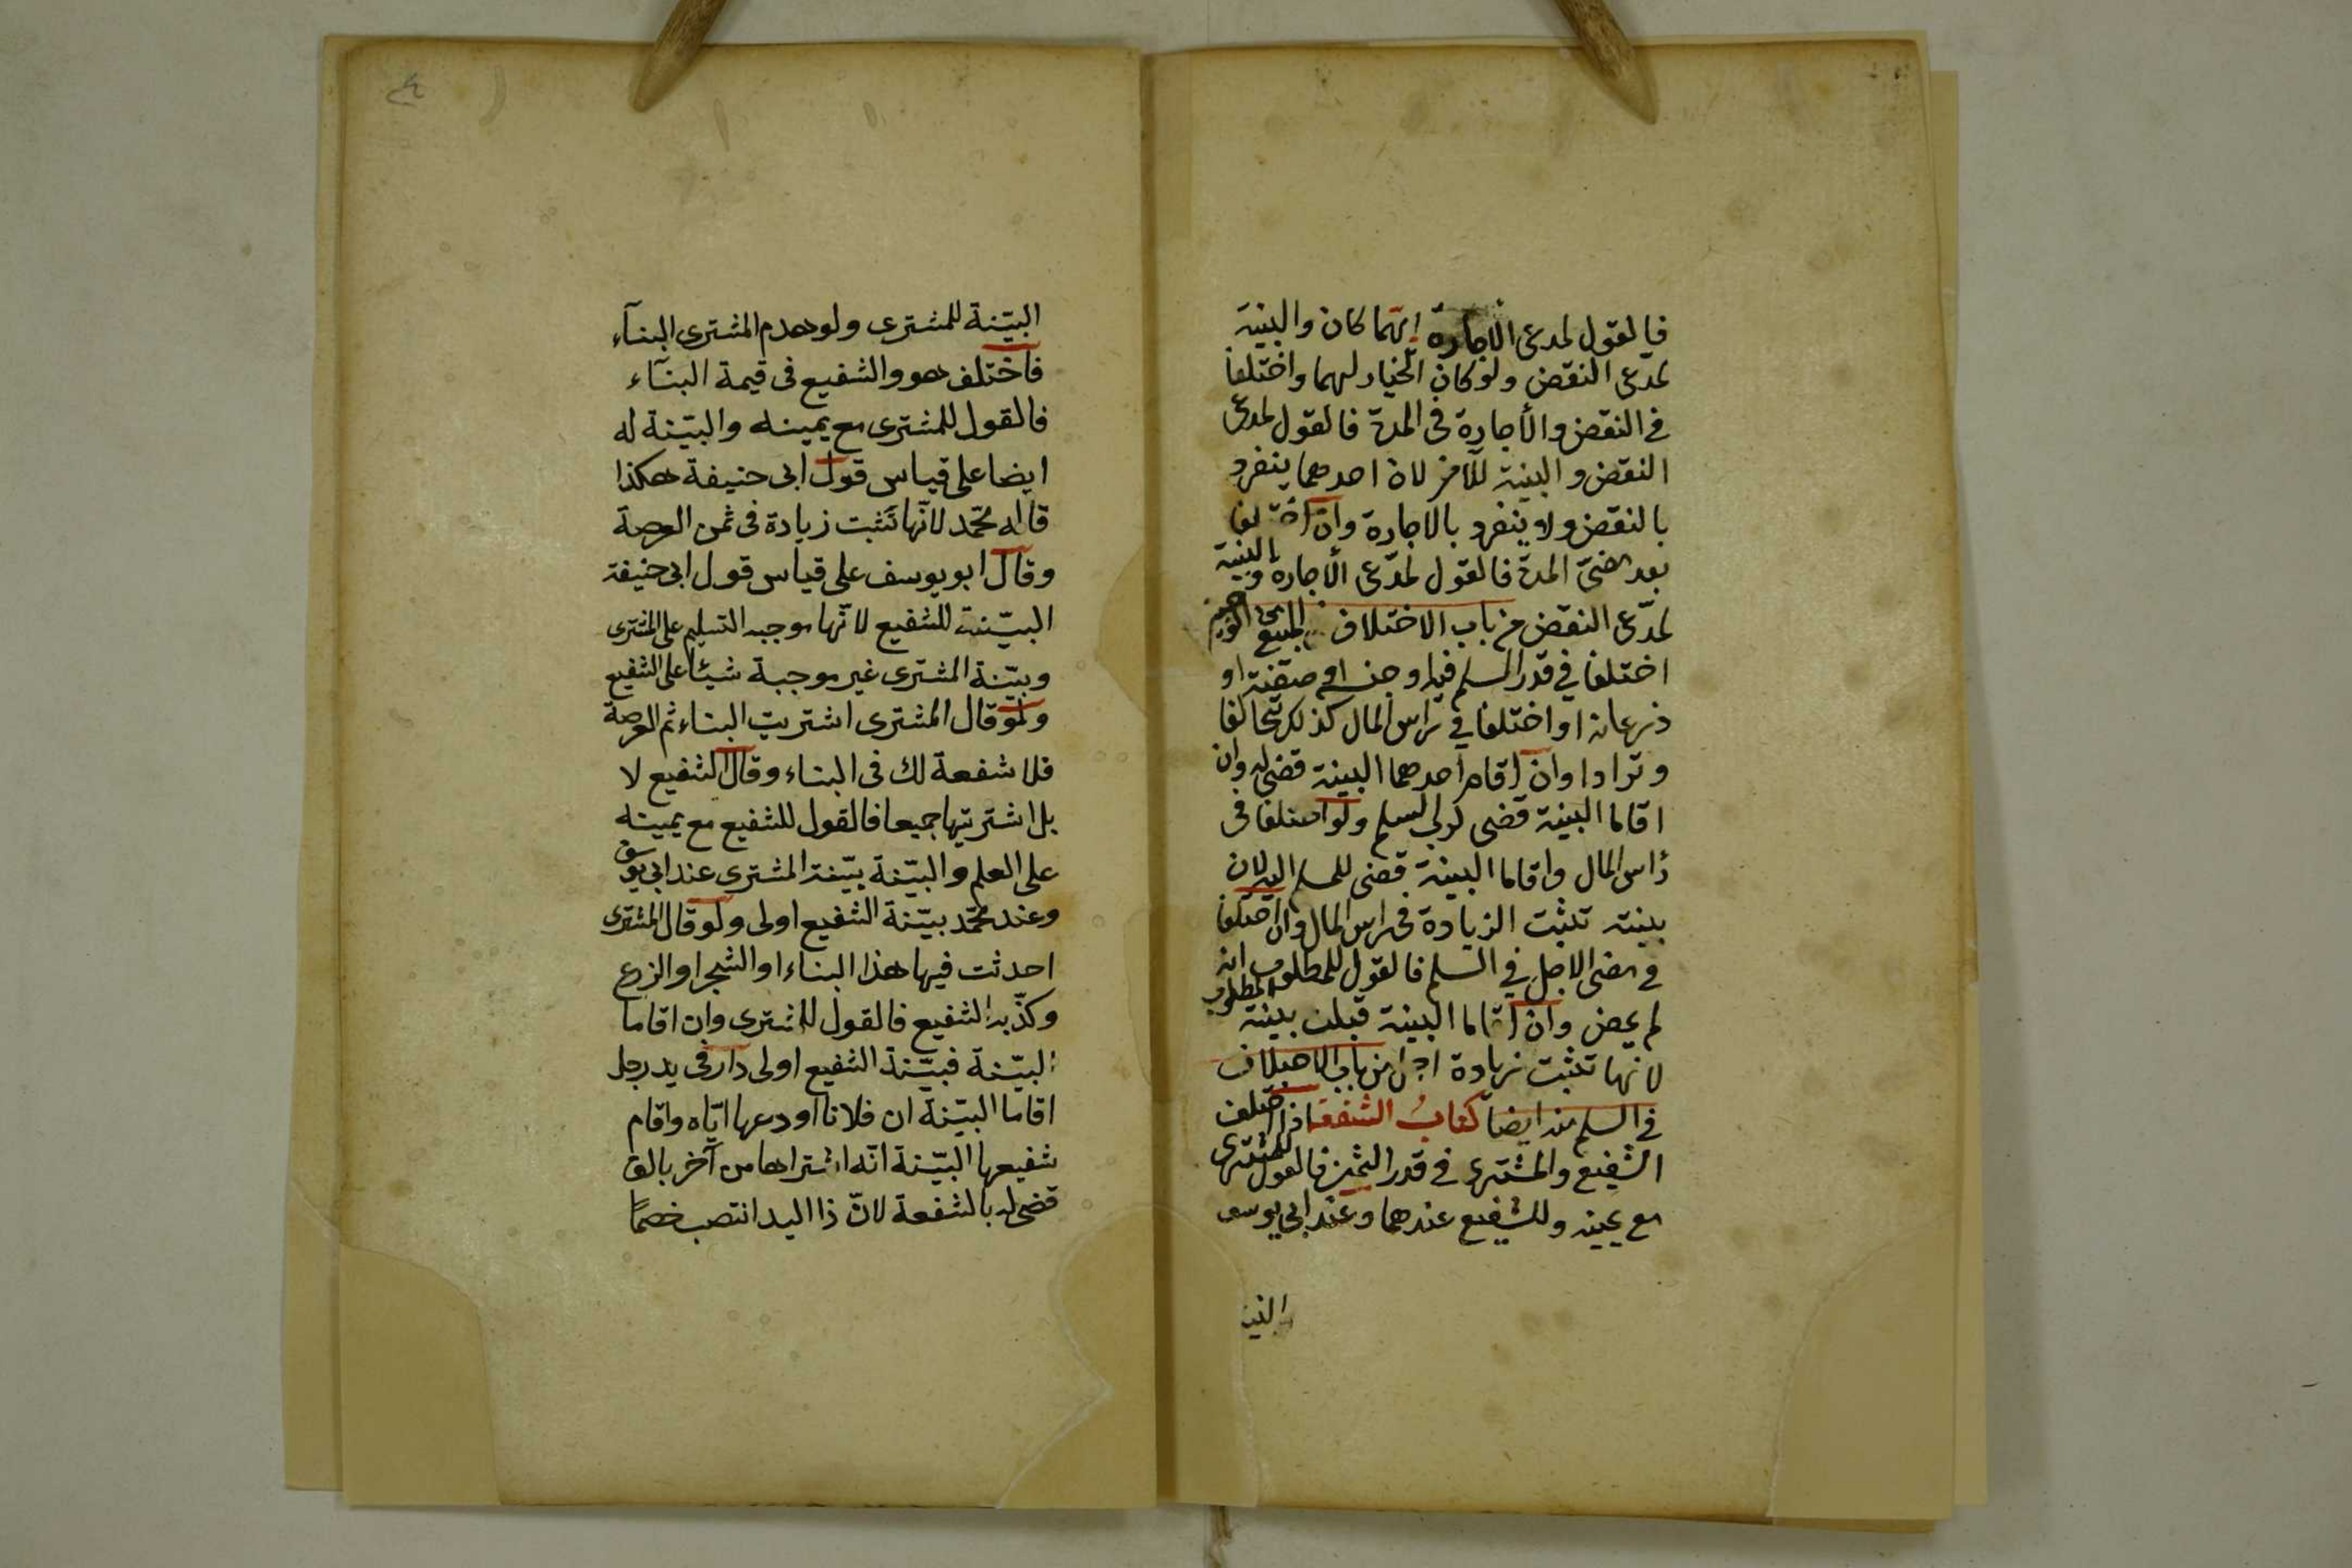 فالقول لمدعى الاجازة ايهما كان والبينة
لمدعى النقض ولو كان الخيار لهما واختلفا
فى النقض والأجازة فى المدة فالقول لمدعى
النقض والبينة للآخر لان احدهما ينفرد
بالنقض ولا ينفرد بالاجازة وان اختلفا
بعد مضى المدة فالقول لمدعى الأجازة والبينة
لمدعى النقض من باب الاختلاف المبيع
اختلفا فى قدر المسلم فيه او جنسه او صفته او
ذرعانه او اختلفا فى راس المال كذلك تحالفا
وترادا وان اقام احدهما البينة قضى له وان
اقاما البينة قضى لرب السلم ولو اختلفا فى
رأس المال واقاما البينة قضى للمسلم اليه لان
بينته تثبت الزيادة فى راس المال وان اختلفا
فى مضى الاجل فى السلم فالقول للمطلوب انه
لم يمض وان اقاما البينة قبلت بينة المطلوب
لانها تثبت زيادة اجل من باب الاختلاف
فى السلم منه ايضا كتابُ الشفعة اذا اختلف
الشفيع والمشترى فى قدر الثمن فالقول للمشترى
مع يمينه وللشفيع عندهما وعند ابى يوسف
البينة
البيّنة للمشترى ولو هدم المشترى البنآء
فاختلف هو والشفيع فى قيمة البنآء
فالقول للمشترى مع يمينه والبيّنة له
ايضا على قياس قول ابى حنيفة هكذا
قاله محمّد لانّها تثبت زيادة فى ثمن العرصة
وقال ابو يوسف على قياس قول ابى حنيفة
البيّنة للشفيع لانّها موجبه التسليم على المشترى
وبيّنة المشترى غير موجبة شيئا على الشفيع
ولو قال المشترى اشتريت البناء ثم العرصة
فلا شفعة لك فى البناء وقال الشفيع لا
بل اشتريتها جميعا فالقول للشفيع مع يمينه
على العلم والبيّنة بيّنة المشترى عند ابى يوسف
وعند محمّد بيّنة الشفيع اولى ولو قال المشترى
احدثت فيها هذا البناء او الشجر او الزرع
وكذّبه الشفيع فالقول للمشترى وان اقاما
البيّنة فبيّنة الشفيع اولى دار فى يد رجل
اقاما البيّنة ان فلانا اودعها ايّاه واقام
شفيعها البيّنة انّه اشتراها من آخر بالف
قضى له بالشفعة لانّ ذا اليد انتصب خصمًا